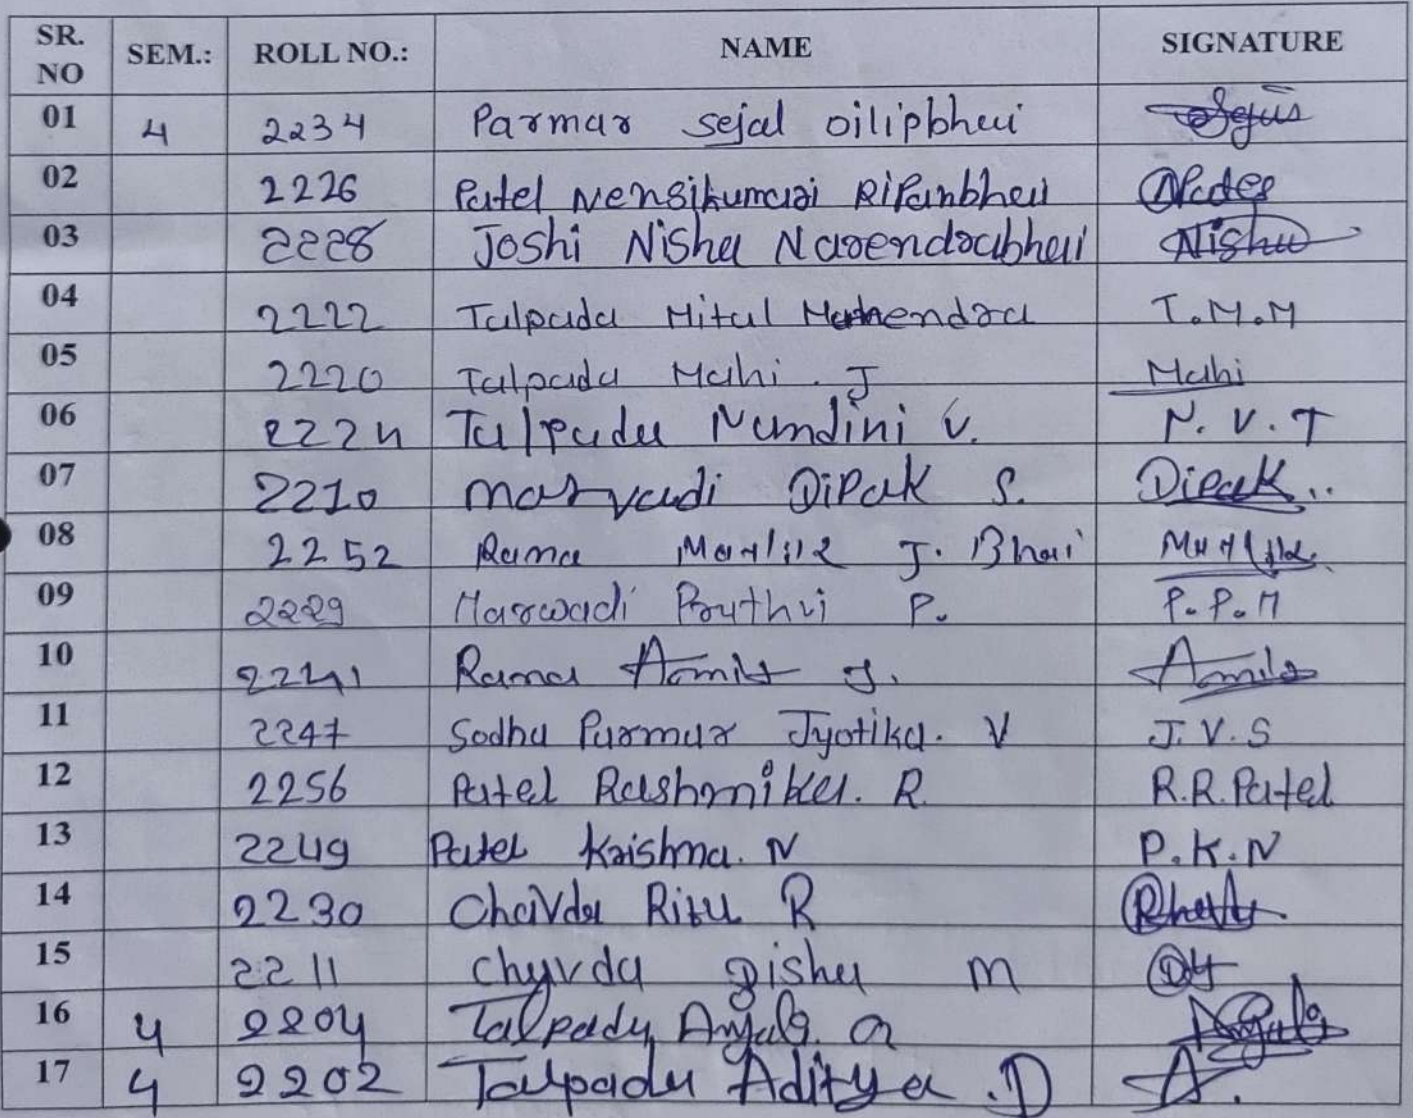 SR. NO SEM.: ROLL NO.: NAME SIGNATURE
01 4 2234 Parmar sejal oilipbhai Sejus
02 2226 Patel Nensikumari Ripanbhai
03 2228 Joshi Nisha Narendrabhai Nisha
04 2222 Talpada Mital Mahendra T.M.M
05 2220 Talpada Mahi . J Mahi
06 2224 Talpada Nandini V. N. V. T
07 2210 Marvadi Dipak S. Dipak..
08 2252 Rama J. Bhai
09 2229 Marwadi Pruthvi P. P. P. M
10 2241 Rama J.
11 2247 Sodha Parmar Jyotika. V J. V. S
12 2256 Patel Rashmika. R. R.R.Patel
13 2249 Patel Krishna. N P.K.N
14 2230 Chaivda Ritu R
15 2211 Chyvda Disha M
16 4 2204 Talpady
17 4 2202 Talpada Aditya .D A.